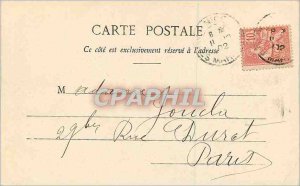 CARTE POSTALE
Ce côté est exclusivement réservé à l'adresse
CPAPHIL
M adame
Jouela
29bis Rue Duret
Paris